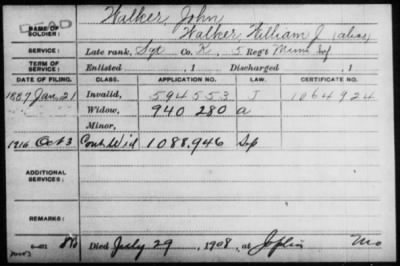 Walker, John
DEAD
NAME OF SOLDIER: Walker William J (alias)
SERVICE: Late rank, Sgt Co. K, 5 Reg't Minn Inf
TERM OF SERVICE: Enlisted , 1 Discharged , 1
DATE OF FILING. CLASS. APPLICATION NO. LAW. CERTIFICATE NO.
1887 Jan. 21 Invalid, 594553 J 1064924
Widow, 940 280 a
Minor,
1916 Oct 3 Cont. Wid 1088,946 Sep
ADDITIONAL SERVICES:
REMARKS:
Died July 29, 1908, at Joplin Mo